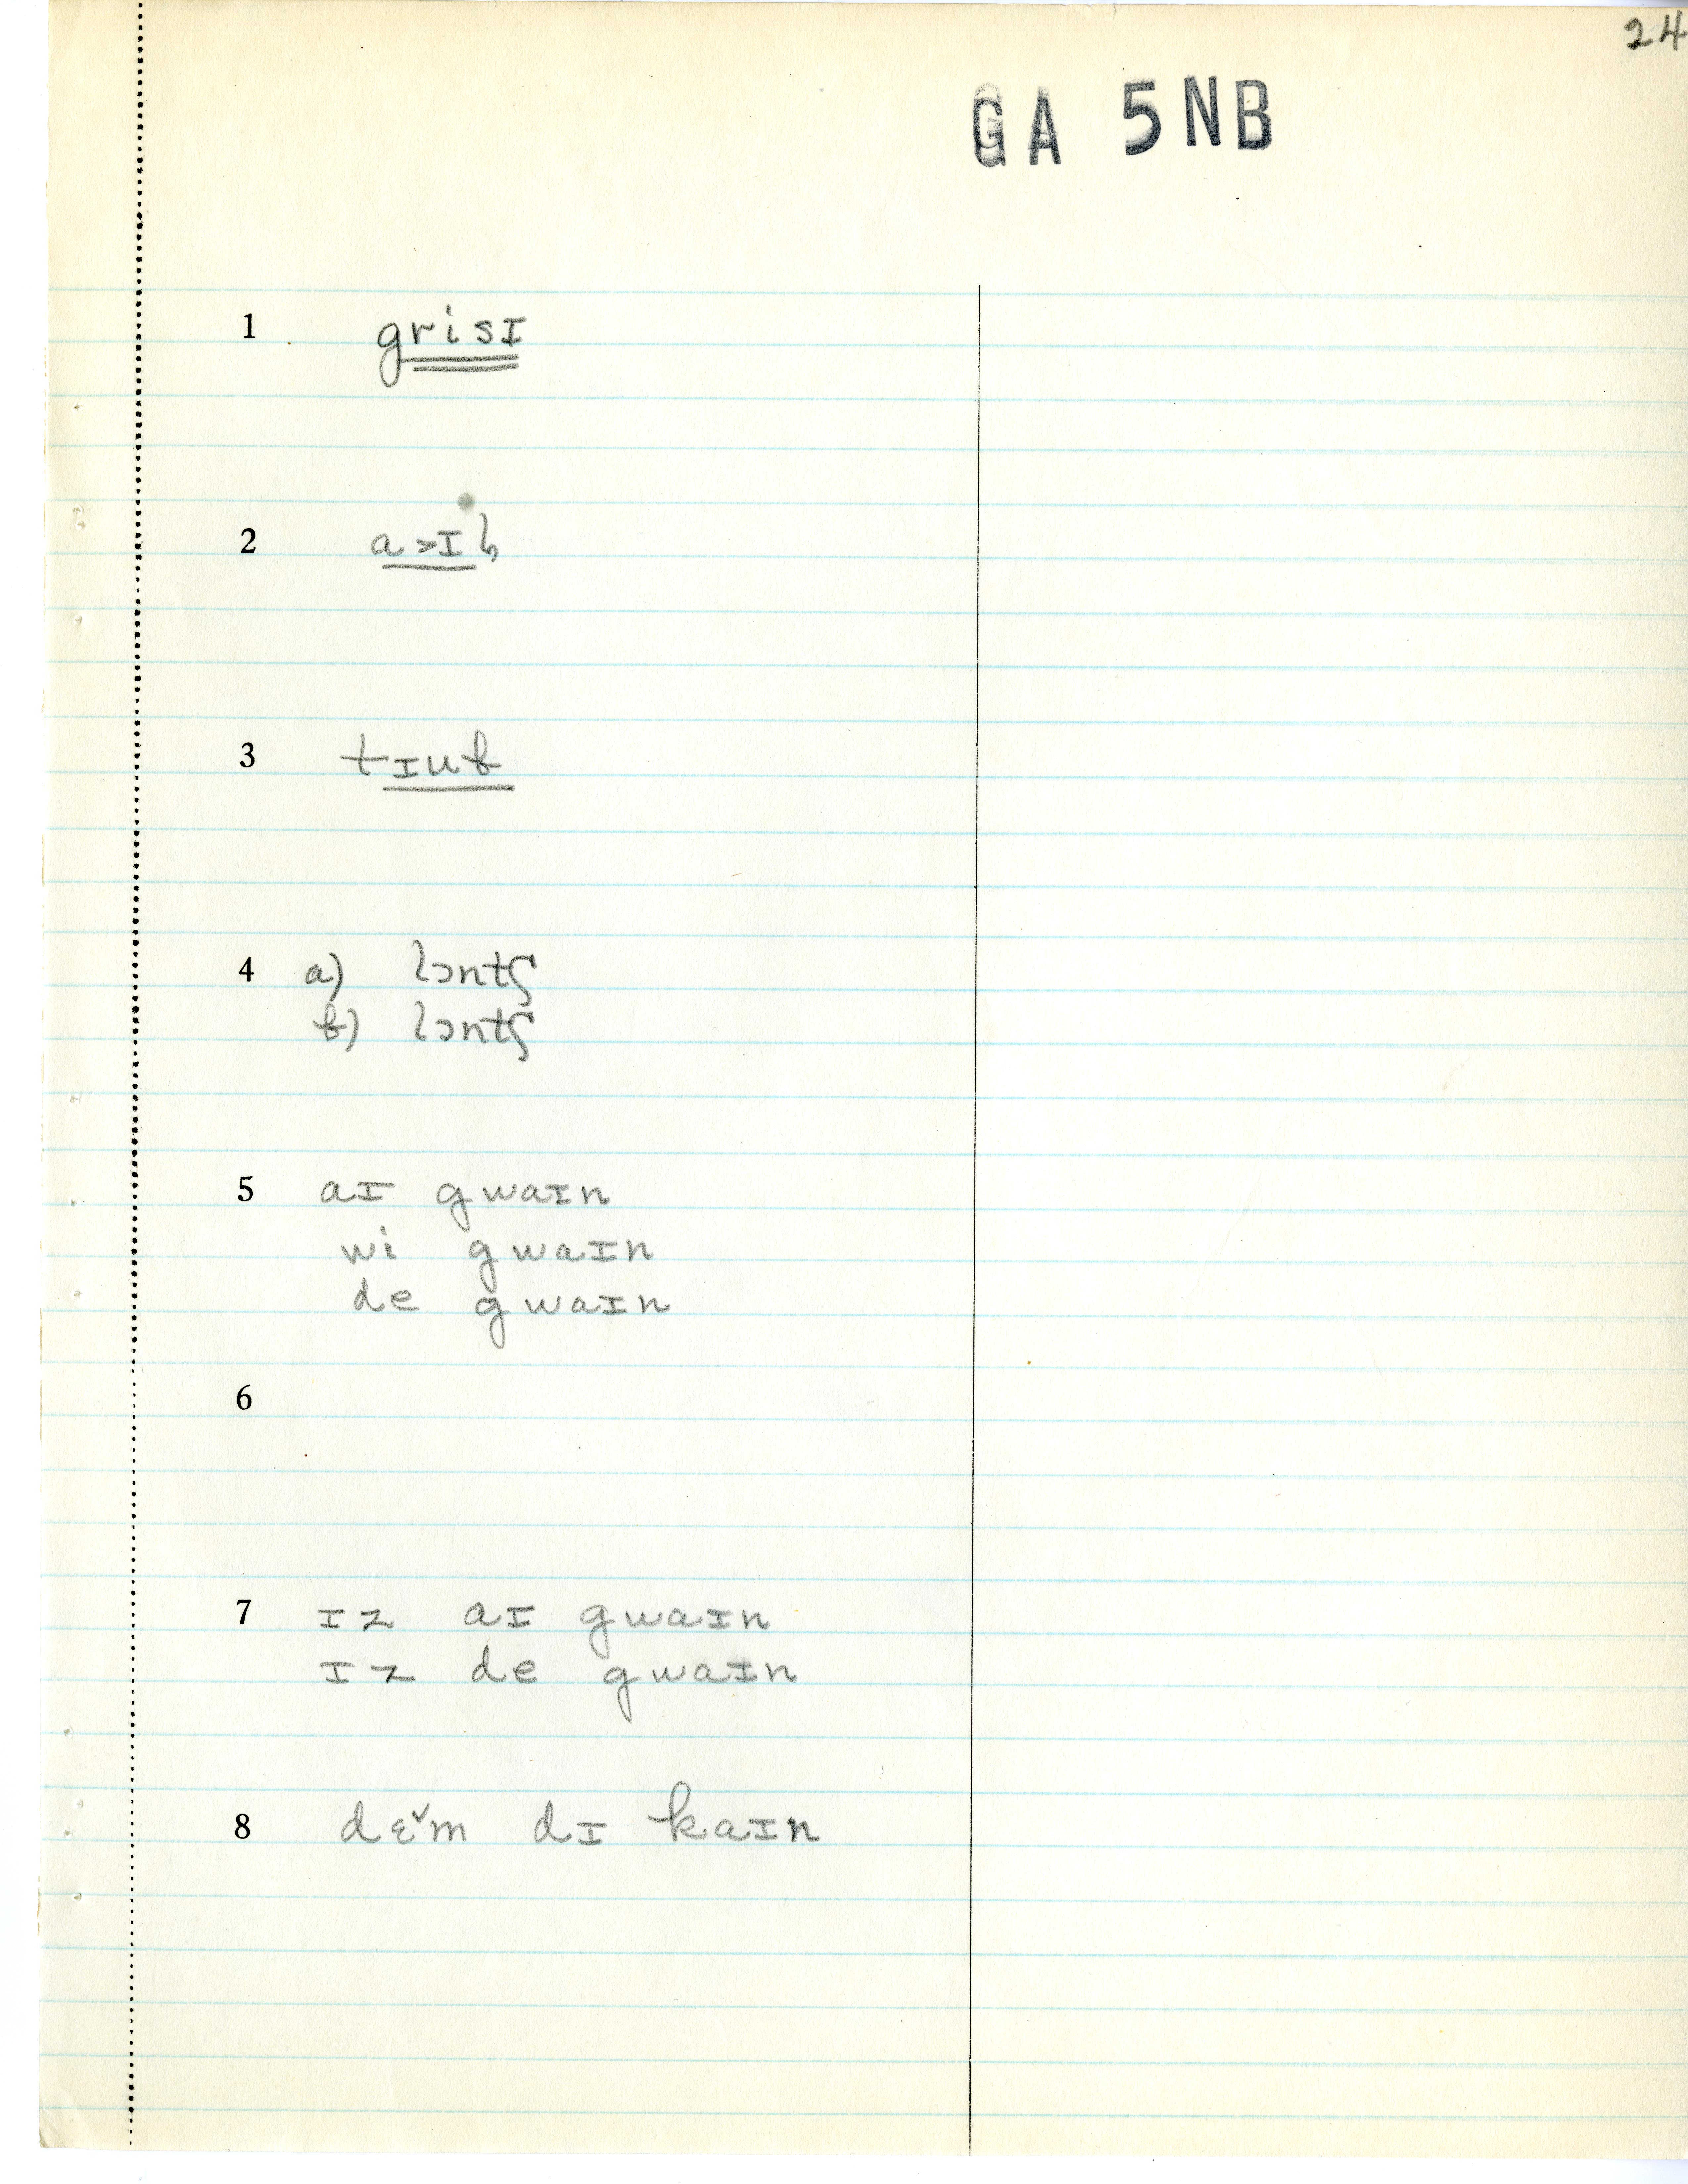 24
GA 5NB
1 grisɪ
2
3 tɪub
4 a) lɔntʃ
b) lɔntʃ
5 aɪ gwaɪn
wi gwaɪn
de gwaɪn
6
7 ɪz aɪ gwaɪn
ɪz de gwaɪn
8 dɛ̌m dɪ kaɪn